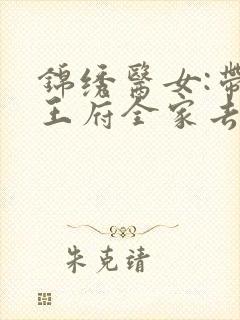 錦绣醫女:帶
王府全家去
朱克靖